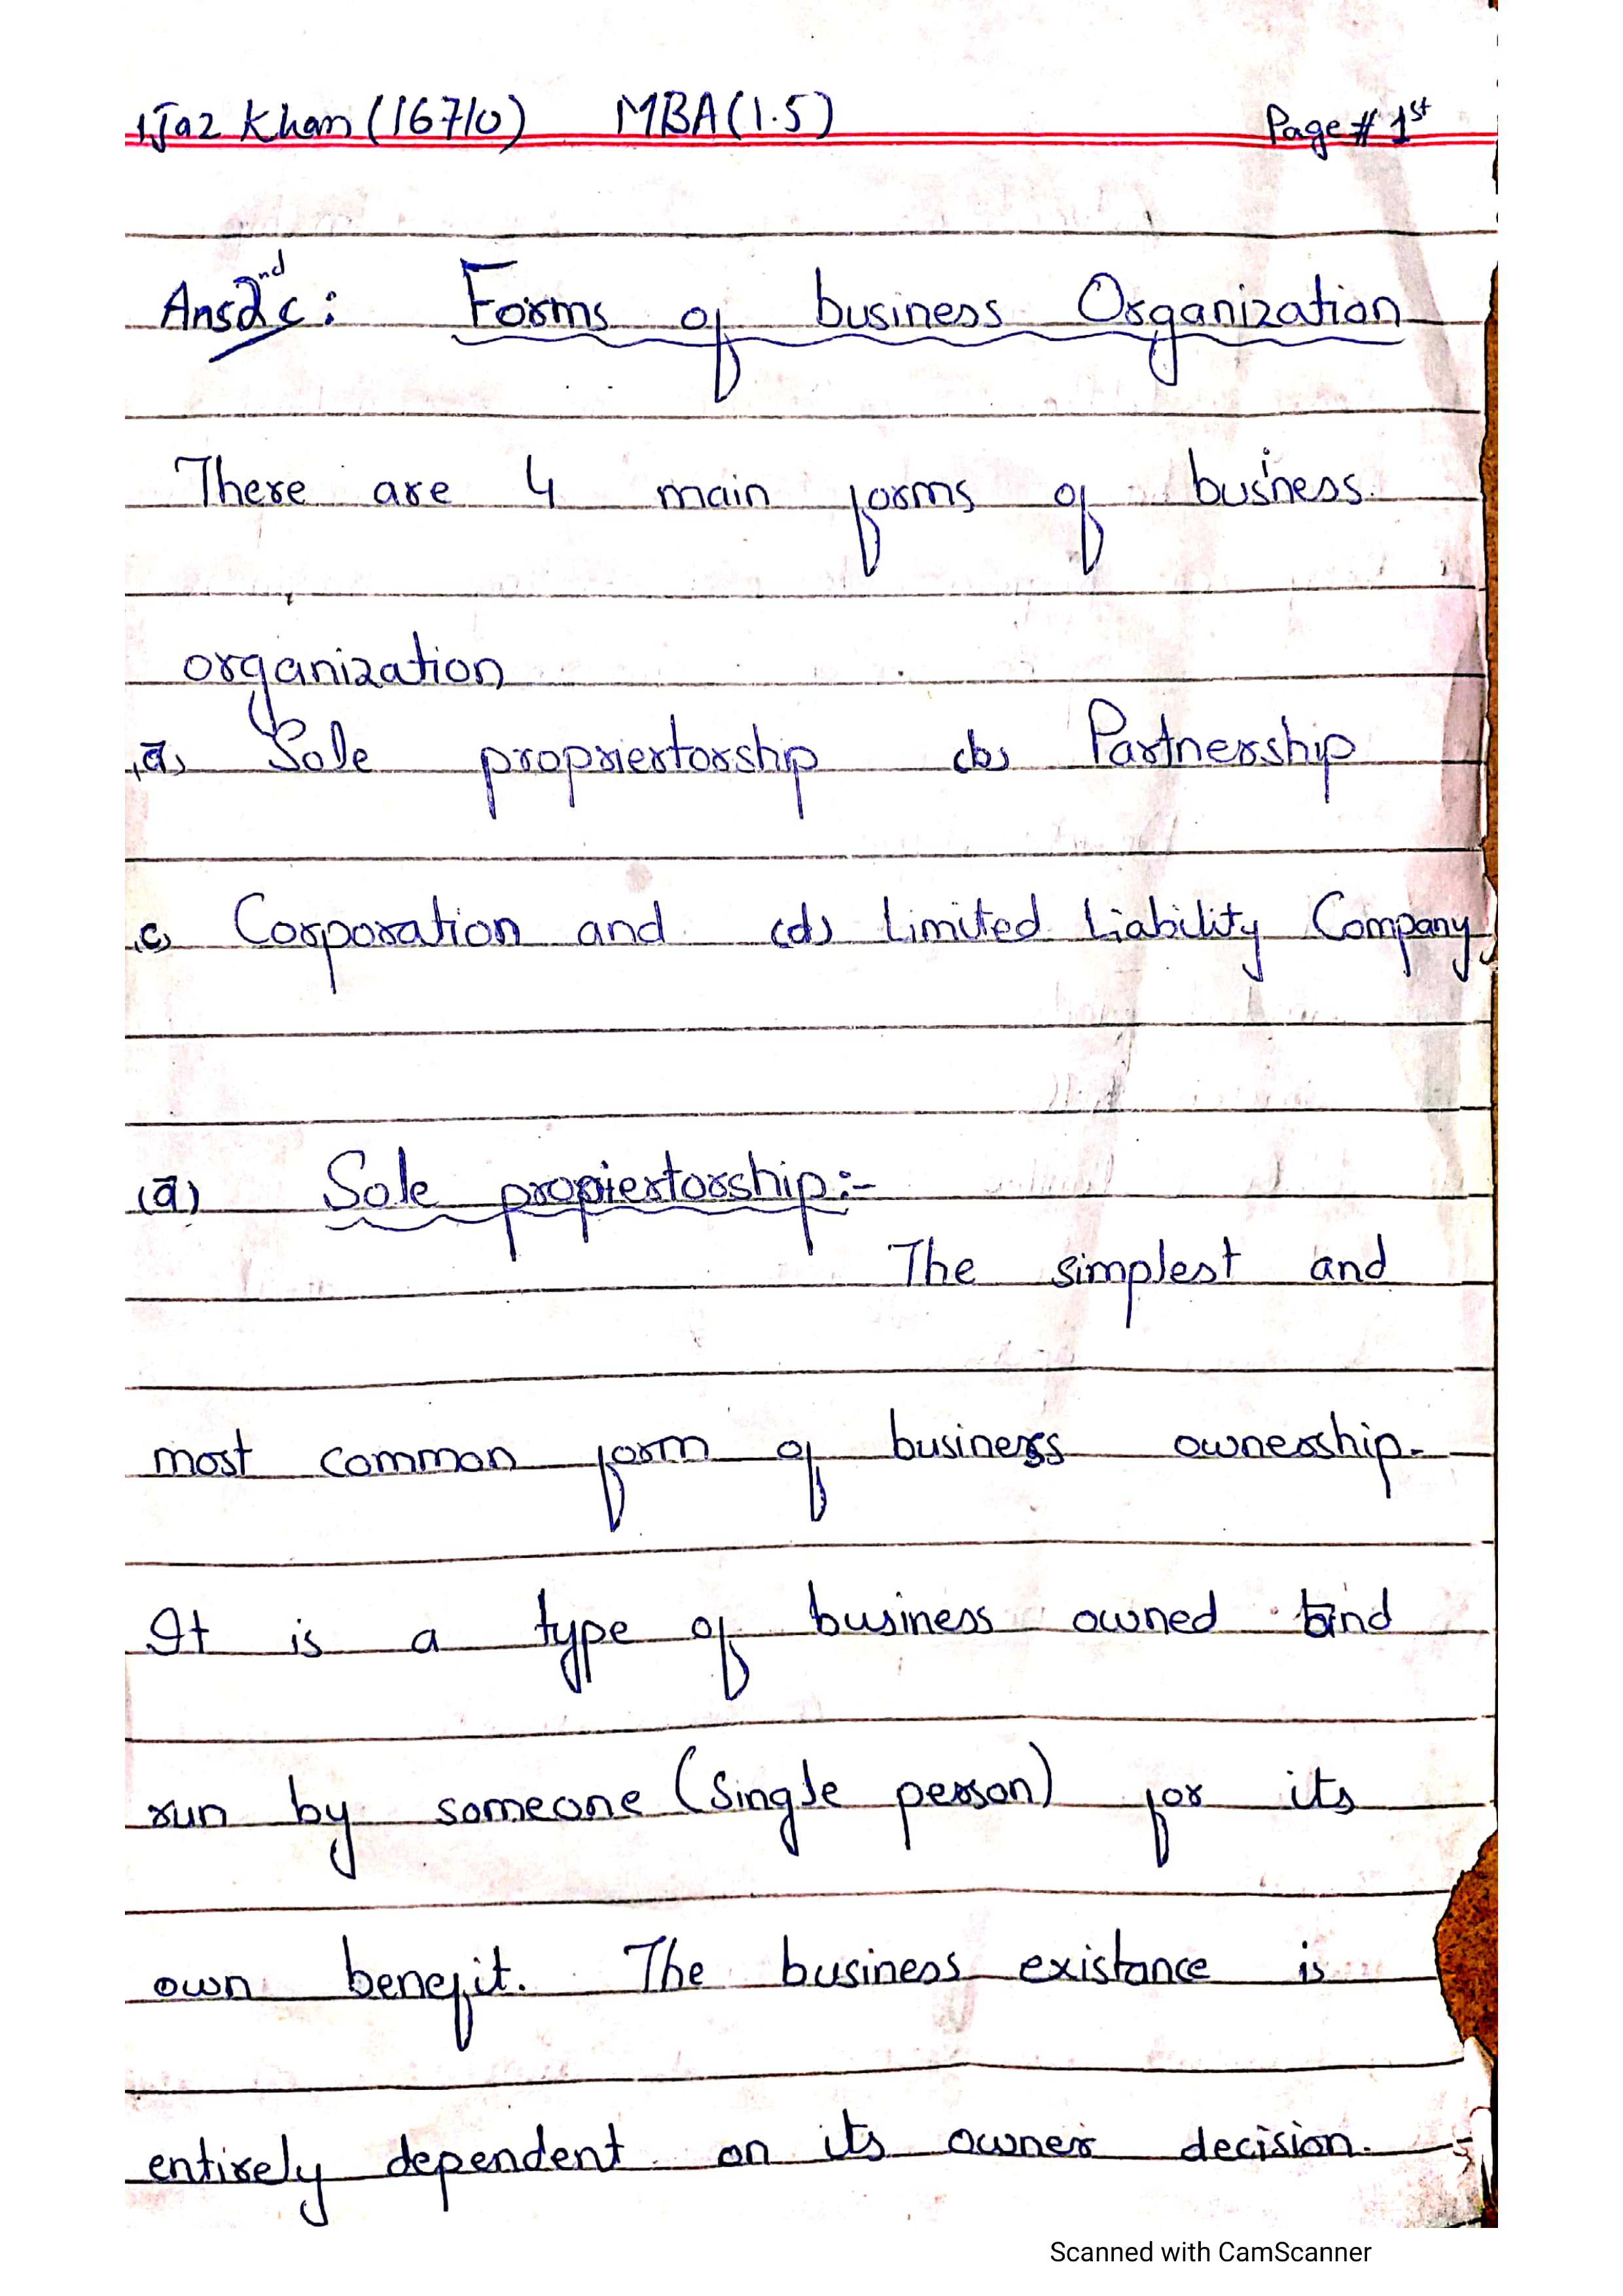 Ijaz Khan (16710) MBA (1.5) Page # 1st
Ans 2nd c: Forms of business Organization
There are 4 main forms of business
organization
(a) Sole propriertorship (b) Partnership
(c) Corporation and (d) Limited Liability Company
(a) Sole propiertorship:-
The simplest and
most common form of business ownership.
It is a type of business owned and
run by someone (Single person) for its
own benefit. The business existance is
entirely dependent on its owner decision.
Scanned with CamScanner